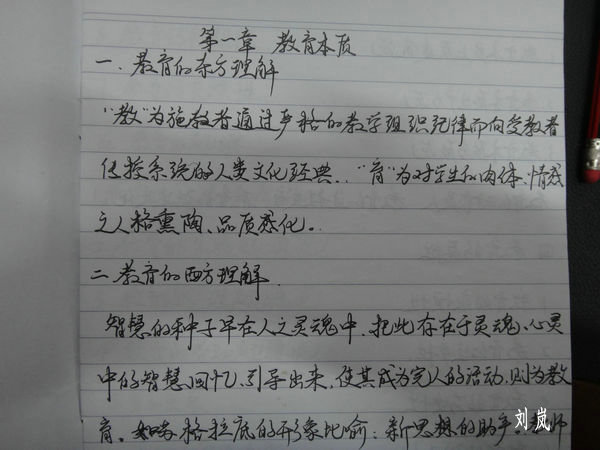 第一章 教育本质
一.教育的东方理解
"教"为施教者通过严格的教学组织纪律而向受教者
传授系统的人类文化经典."育"为对学生的肉体、情感
之人格熏陶、品质感化。
二.教育的西方理解.
智慧的种子早在人之灵魂中.把此存在于灵魂、心灵
中的智慧.回忆、引导出来,使其成为完人的活动.则为教
育.如苏格拉底的形象比喻:新思想的助产
刘岚